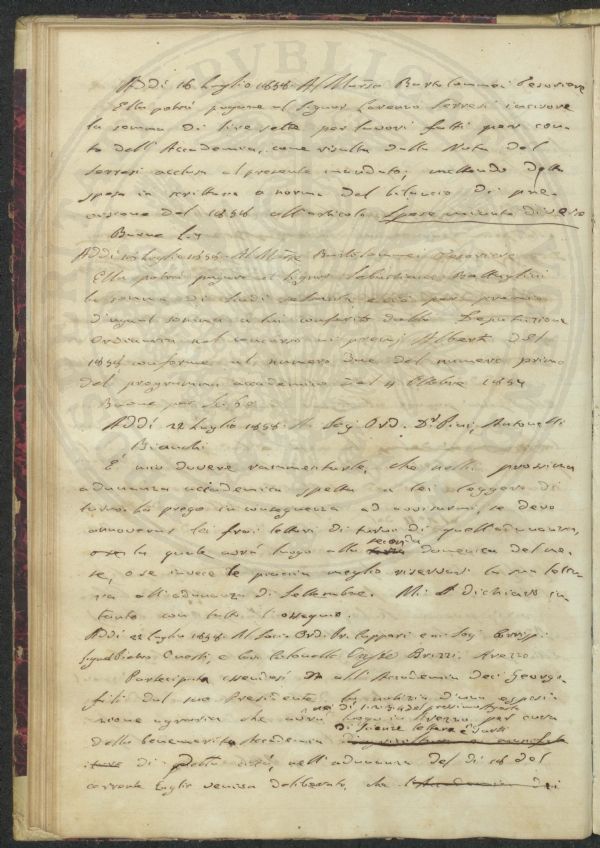 Addì 16 Luglio 1858 Al March. Bartolommei Tesoriere
Ella potrà pagare al Signor Lorenzo Serresi incisore
la somma di lire sette per lavori fatti per con-
to dell'Accademia, come risulta dalla Nota del
Serresi acclusa al presente mandato; mettendo detta
spesa in scrittura a norma del bilancio di pre-
visione del 1858 all'articolo Spese minute diverse
Buono L. 7
Addì Luglio 1858 Al March. Bartolommei Tesoriere
Ella potrà pagare al Signor Sebastiano Battaglini
la somma di scudi sessanta per premio
d'ugual somma a lui conferito dalla Deputazione
Ordinaria nel concorso ai premj Alberti del
1857 conforme al numero due del numero primo
del programma accademico del 4 Ottobre 1857
Buono per Sc. 60
Addì 22 Luglio 1858 Ai Socj Ord. Dr. Pini, Antonelli
Bianchi
È mio dovere rammentarle, che nella prossima
adunanza accademica spetta a lei leggere di
turno. La prego in conseguenza ad avvisarmi, se devo
annoverar lei frai lettori di turno di quell'adunanza,
la quale avrà luogo alla seconda domenica del me-
se, o se invece le piaccia meglio riserbarsi la sua lettu-
ra all'adunanza di Settembre. Mi dichiaro in-
tanto con tutto l'ossequio.
Addì 22 Luglio 1858 Al Socio Ord. Dr. Cappari e ai Socj Corrisp.
Signori Pietro Onesti, e Cav. Colonnello Oreste Brizzi. Arezzo
Partecipata essendosi all'Accademia dei Georgo-
fili dal suo Presidente la notizia d'una esposi-
zione agraria che avrà luogo in Arezzo nei dì del prossimo Agosto per cura
della benemerita Accademia di Scienze lettere e arti
di questa città, nell'adunanza del dì 18 del
corrente Luglio veniva deliberato, che l'Accademia dei